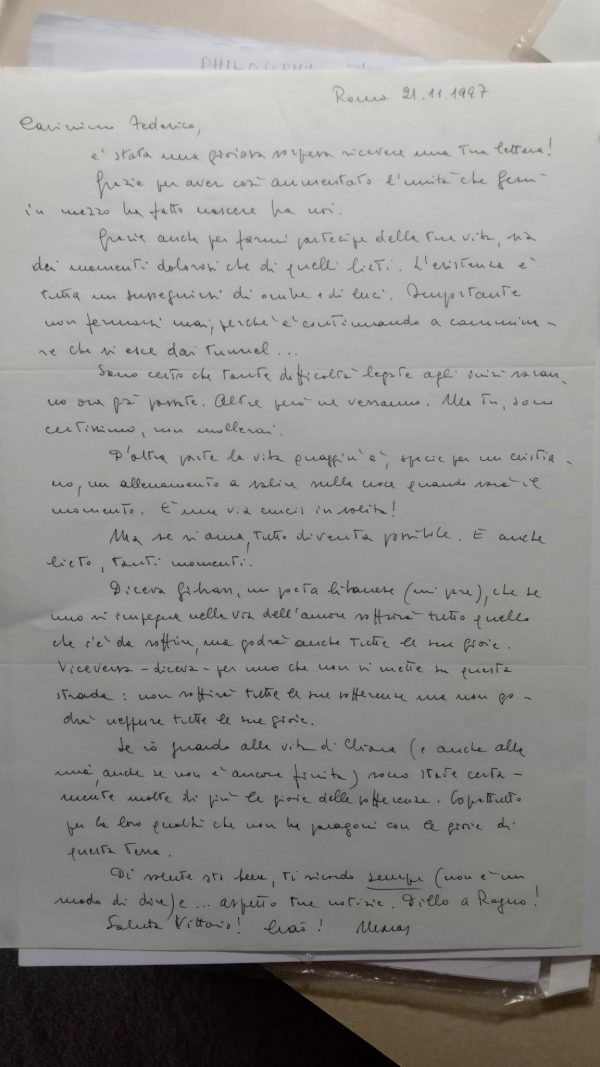 Roma 21.11.1997
Carissimo Federico,
è stata una gioiosa sorpresa ricevere una tua lettera!
Grazie per aver così aumentato l'unità che Gesù
in mezzo ha fatto nascere fra noi.
Grazie anche per farmi partecipe della tua vita, sia
dei momenti dolorosi che di quelli lieti. L'esistenza è
tutta un susseguirsi di ombre e di luci. Importante
non fermarsi mai, perché è continuando a cammina-
re che si esce dai tunnel...
Sono certo che tante difficoltà legate agli inizi saran-
no ora già passate. Altre però ne verranno. Ma tu, sono
certissimo, non mollerai.
D'altra parte la vita quaggiù è, specie per un cristia-
no, un allenamento a salire sulla croce quando sarà il
momento. È una via crucis in salita!
Ma se si ama, tutto diventa possibile. E anche
lieto, tanti momenti.
Diceva Gibran, un poeta libanese (mi pare), che se
uno si impegna nella via dell'amore soffrirà tutto quello
che c'è da soffrire, ma godrà anche tutte le sue gioie.
Viceversa - diceva - per uno che non si mette su questa
strada: non soffrirà tutte le sue sofferenze ma non go-
drà neppure tutte le sue gioie.
Se io guardo alla vita di Chiara (e anche alla
mia, anche se non è ancora finita) sono state certa-
mente molte di più le gioie delle sofferenze. Soprattutto
per la loro qualità che non ha paragoni con le gioie di
questa terra.
Di salute sto bene, ti ricordo sempre (non è un
modo di dire) e ... aspetto tue notizie. Dillo a Ragno!
Saluta Vittorio! Ciao!